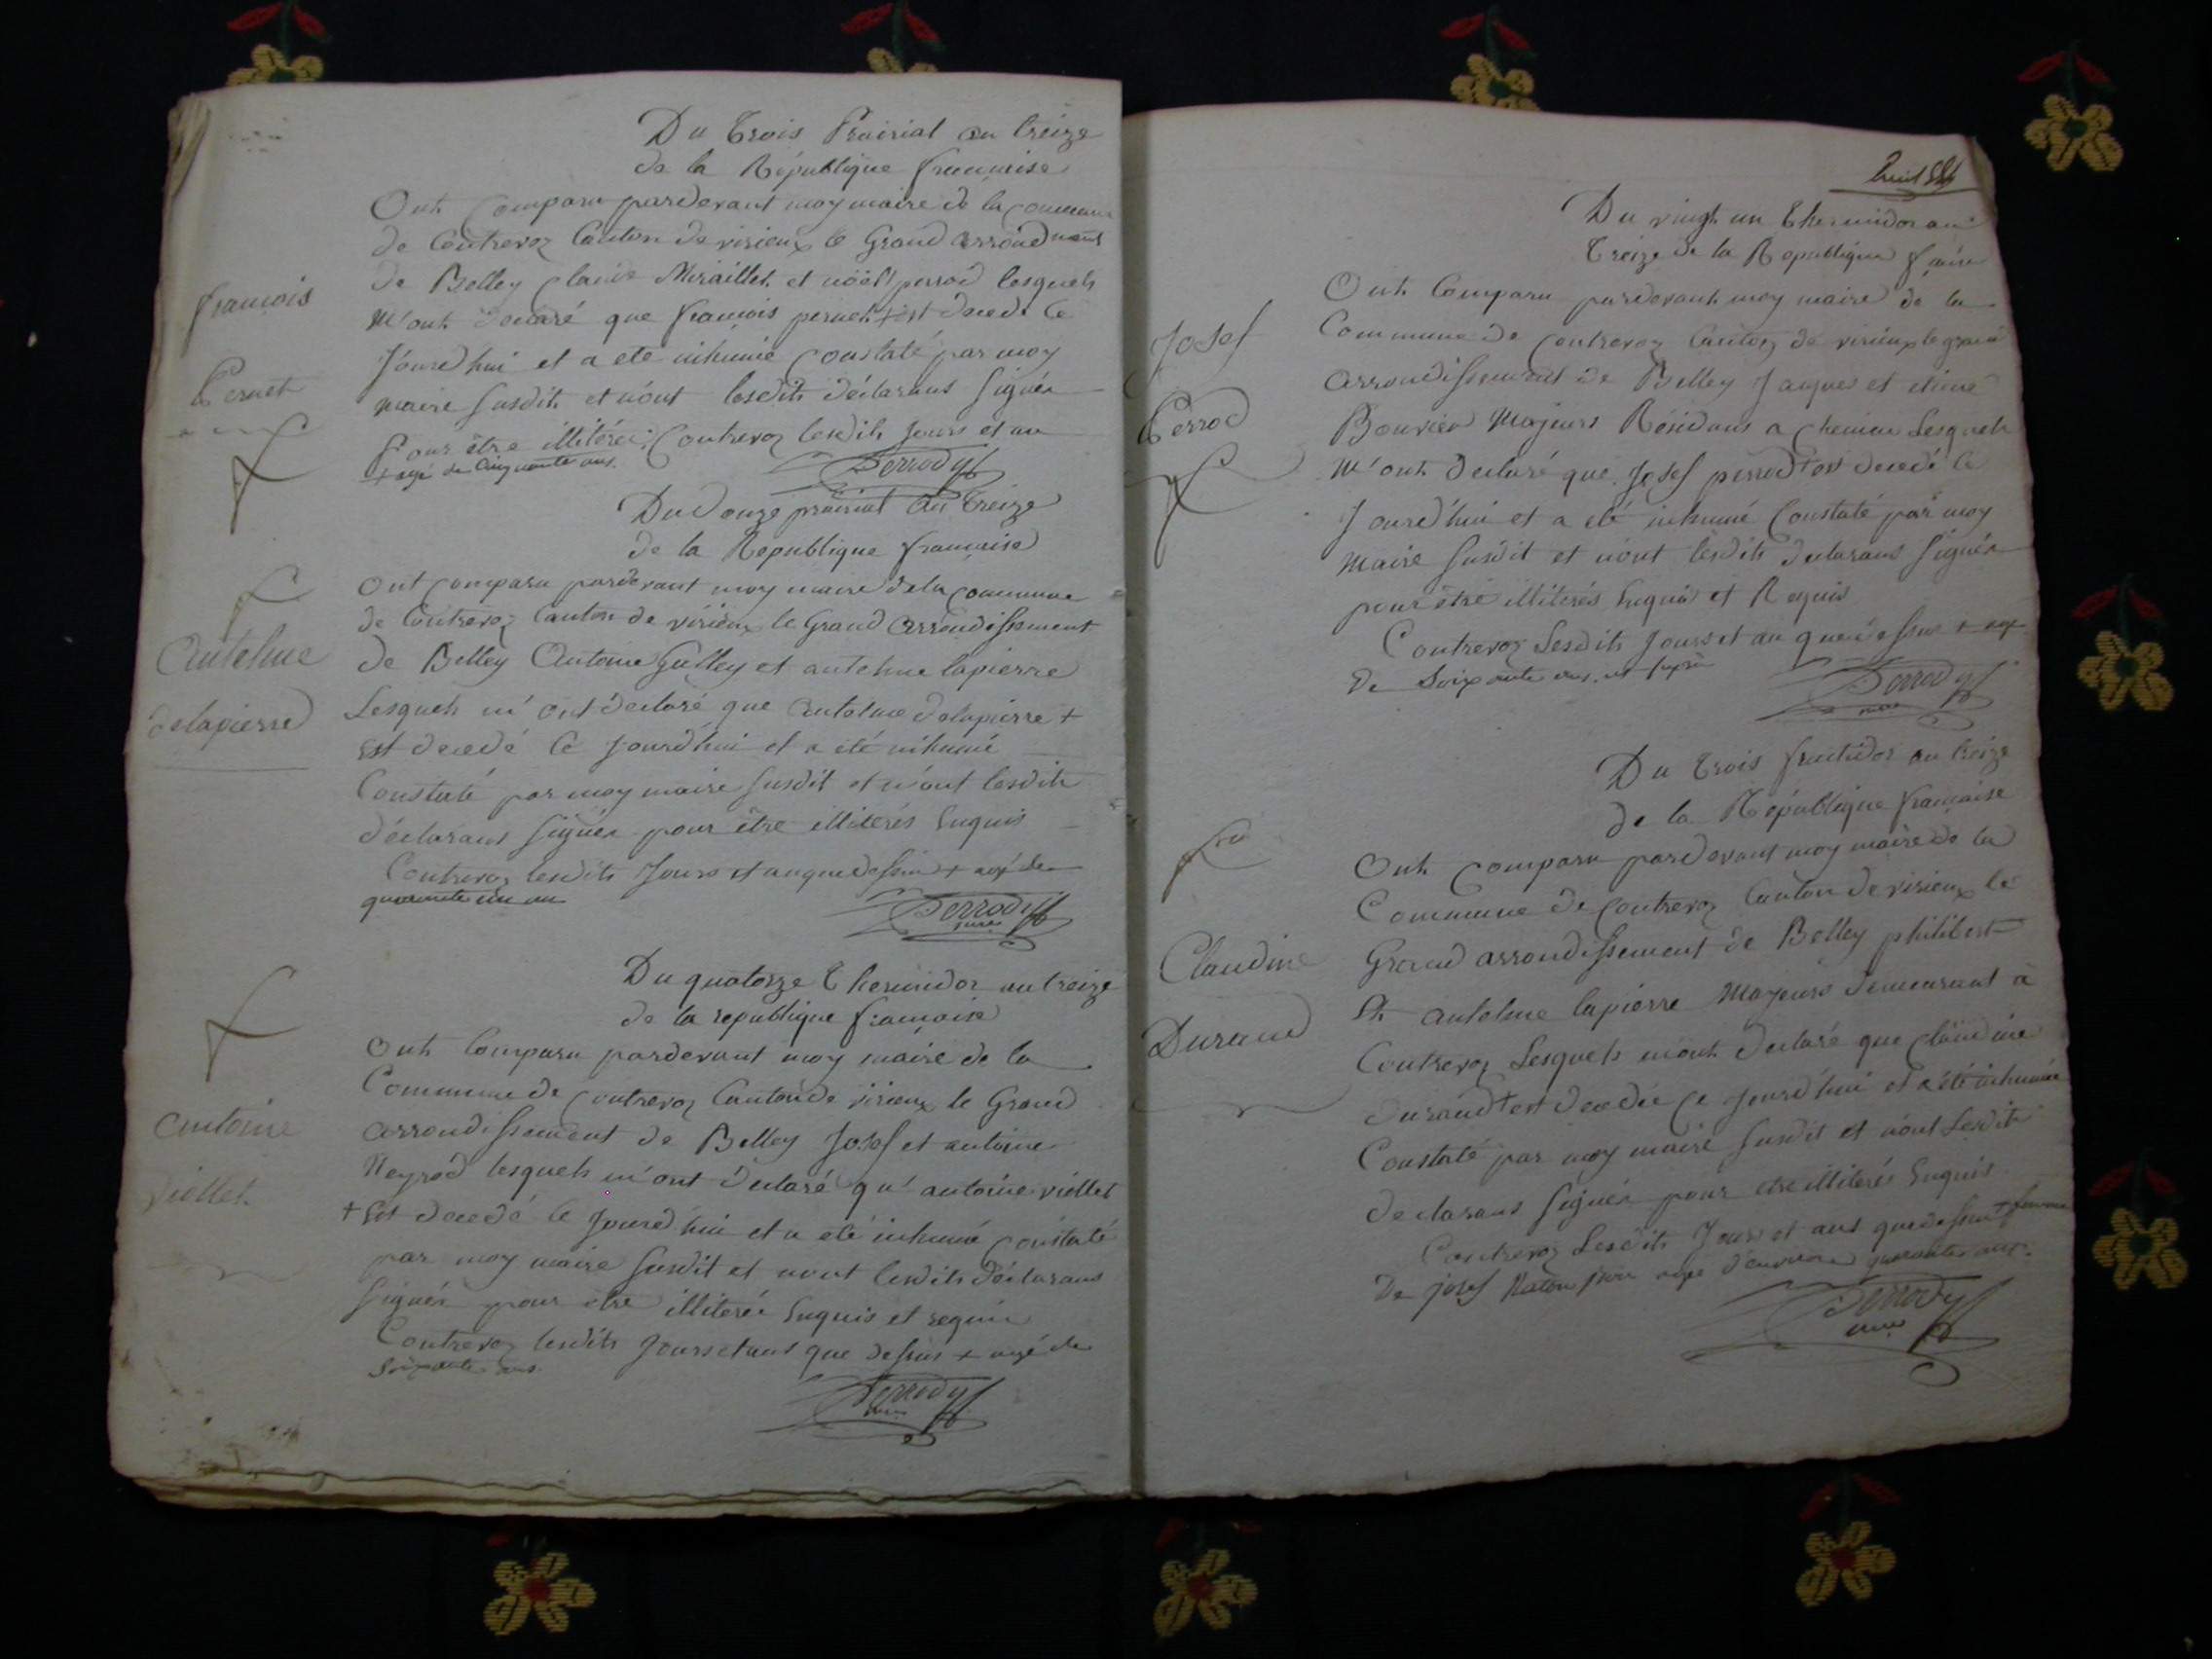 Du trois Prairial an treize
de la République française
Ont Comparu pardevant moy maire de la commune
de Contrevoz Canton de virieux le Grand arrondment
De Belley Claude Miraillet et nöël perrod lesquels
M'ont declaré que françois pernet + est decedé Ce
Jourd'hui et a eté inhumé Constaté par moy
maire susdit et n'ont lesdits déclarans signés
Pour être illitérés Contrevoz lesdits Jours et an
+ agé de Cinquante ans.
Perrody
françois
Pernet
Du Douze prairial an treize
de la Republique française
Ont Comparu pardevant moy maire de la Commune
de Contrevoz Canton de virieux le Grand arrondissement
De Belley Antoine Gulley et antelme lapierre
Lesquels m'ont declaré que antelme delapierre +
est decedé Ce Jourd'hui et a été inhumé
Constaté par moy maire susdit et n'ont lesdits
déclarans signés pour être illiterés Enquis
Contrevoz lesdits Jours et an que dessus + agé de
quarante un an
Perrody
maire
Antelme
delapierre
Du quatorze Thermidor an treize
de la republique française
Ont Comparu pardevant moy maire de la
Commune de Contrevoz Canton de virieux le Grand
arrondissement de Belley Josef et antoine
Neyrod lesquels m'ont declaré qu'antoine viollet
+ Est decedé Ce Jourd'hui et a eté inhumé Constaté
par moy maire susdit et n'ont lesdits déclarans
signés pour etre illiterés Enquis et requis
Contrevoz lesdits Jours et ans que dessus + agé de
Soixante ans.
Perrody
maire
antoine
viollet
Du vingt un Thermidor an
treize de la Republique
Ont Comparu pardevant moy maire de la
Commune de Contrevoz Canton de virieux le grand
arrondissement de Belley Jaques et etiene
Bouvier Majeurs Résidans a Cheminé Lesquels
M'ont declaré que Josef perrod + est decedé Ce
Jourd'hui et a eté inhumé Constaté par moy
Maire susdit et n'ont lesdits declarans signés
pour être illiterés Enquis et Requis
Contrevoz Lesdits Jours et an que dessus + agé
De Soixante ans.
Perrody
maire
Josef
Perrod
Du trois fructidor an treize
de la République française
Ont Comparu pardevant moy maire de la
Commune de Contrevoz Canton de virieux le
Grand arrondissement de Belley philibert
Et antelme lapierre Majeurs demeurant à
Contrevoz Lesquels m'ont declaré que Claudine
durand + est decedée Ce Jourd'hui et a été inhumée
Constaté par moy maire susdit et n'ont Lesdits
declarans signés pour etre illiterés Enquis
Contrevoz Lesdits Jours et ans que dessus + femme
De josef agée d'environ quarante ans.
Perrody
maire
Claudine
Durand